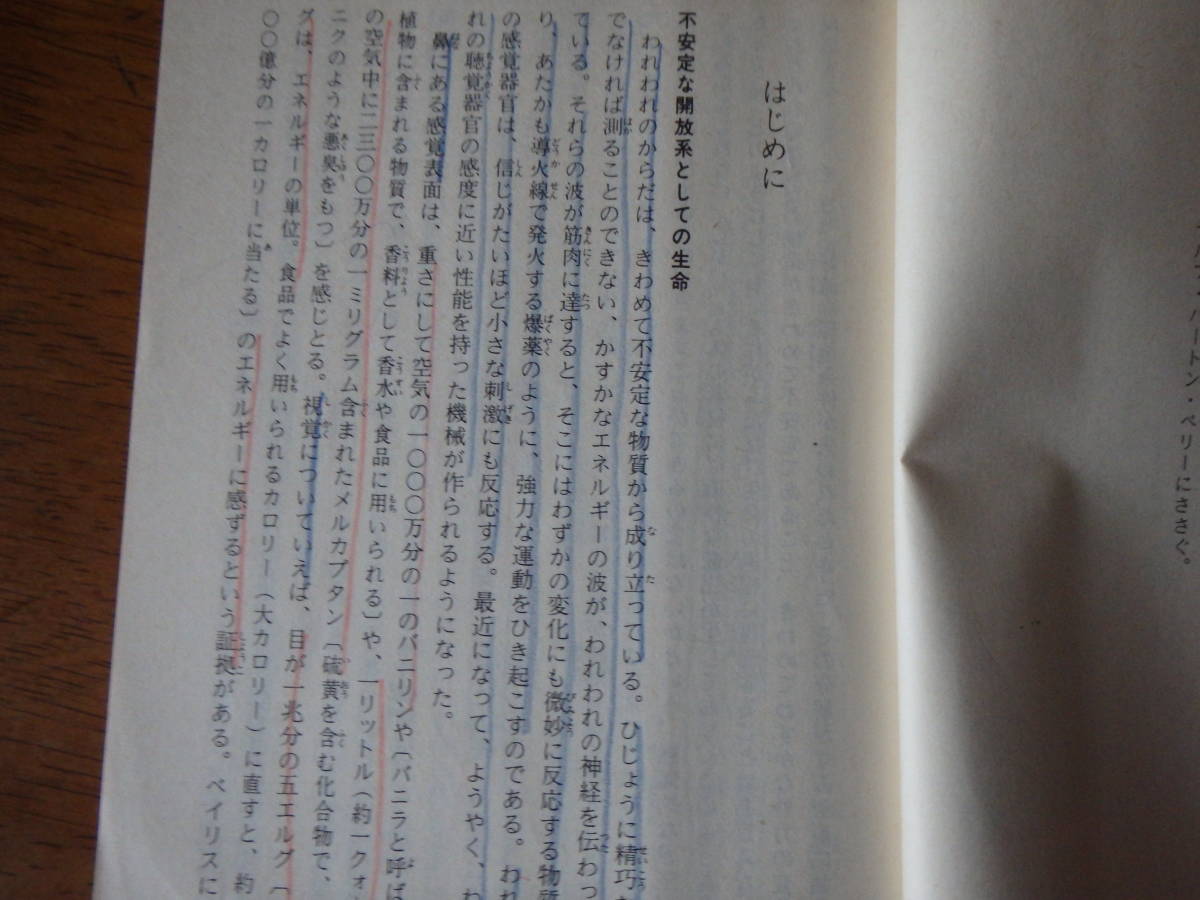 バートン・ペリーにささぐ。
はじめに
不安定な開放系としての生命
われわれのからだは、きわめて不安定な物質から成り立っている。ひじょうに精巧な
でなければ測ることのできない、かすかなエネルギーの波が、われわれの神経を伝わっ
ている。それらの波が筋肉に達すると、そこにはわずかの変化にも微妙に反応する物質
り、あたかも導火線で発火する爆薬のように、強力な運動をひき起こすのである。われ
の感覚器官は、信じがたいほど小さな刺激にも反応する。最近になって、ようやく、わ
れの聴覚器官の感度に近い性能を持った機械が作られるようになった。
鼻にある感覚表面は、重さにして空気の一〇〇〇万分の一のバニリンや〔バニラと呼ば
植物に含まれる物質で、香料として香水や食品に用いられる〕や、一リットル(約一クォ
の空気中に二三〇〇万分の一ミリグラム含まれたメルカプタン〔硫黄を含む化合物で、
ニクのような悪臭をもつ〕を感じとる。視覚についていえば、目が一兆分の五エルグ〔
グは、エネルギーの単位。食品でよく用いられるカロリー(大カロリー)に直すと、約
〇〇億分の一カロリーに当たる〕のエネルギーに感ずるという証拠がある。ベイリスに